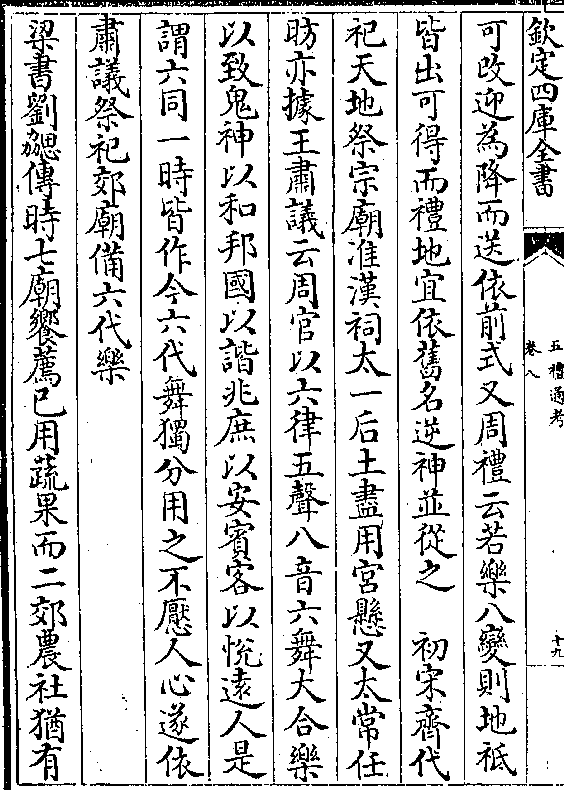 欽定四庫全書
五禮通考
卷八
十九
可改迎為降而送依前式又周禮云若樂八變則地祗
皆出可得而禮地宜依舊名逆神並從之　初宋齊代
祀天地祭宗廟准漢祠太一后土盡用宮懸又太常任
昉亦據王肅議云周官以六律五聲八音六舞大合樂
以致鬼神以和邦國以諧兆庶以安賓客以悅遠人是
謂六同一時皆作今六代舞獨分用之不厭人心遂依
肅議祭祀郊廟備六代樂
梁書劉勰傳時七廟饗薦已用蔬果而二郊農社猶有